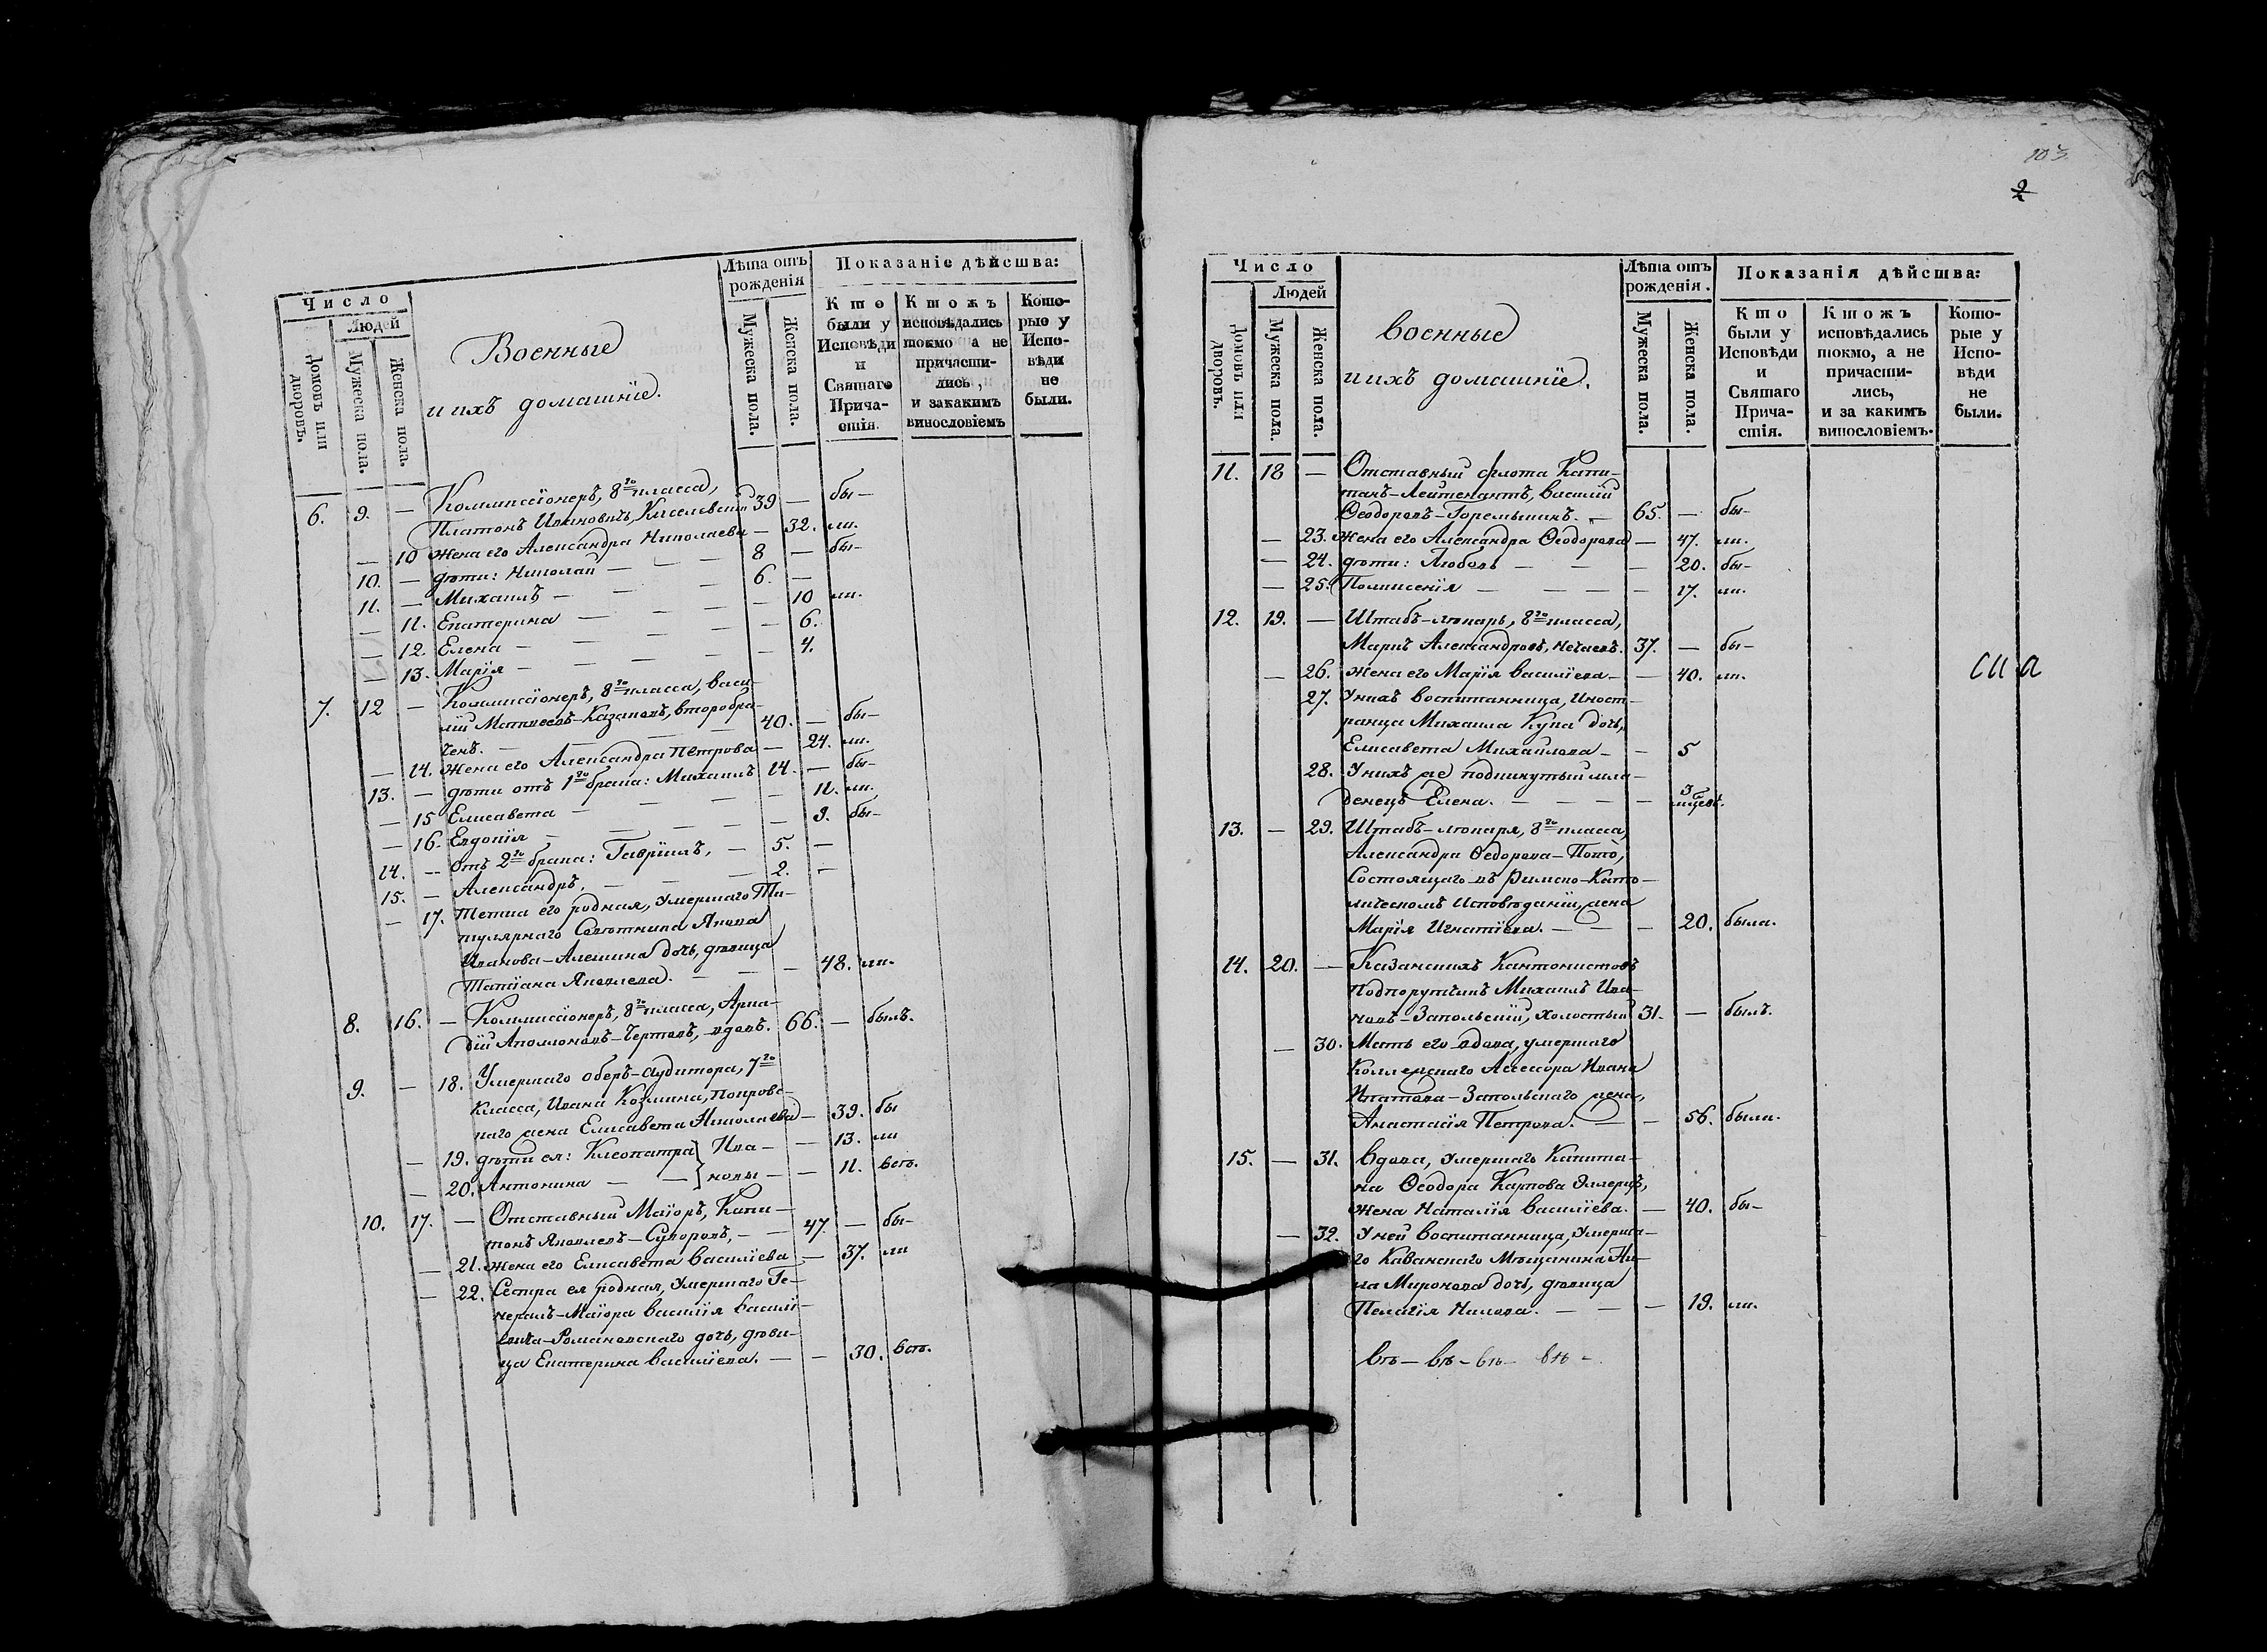 Число
Людей
Домовъ или дворовъ.
Мужеска пола.
Женска пола.
Военные
и ихъ домашніе.
Лѣта отъ рожденія
Мужеска пола.
Женска пола.
Показаніе дѣйства:
Кто были у Исповѣди и Святаго Прича-стія.
Ктожъ исповѣдались токмо а не причасти-лись, и закакимъ винословіемъ
Кото-рые у Испо-вѣди не были.
6. 9. — Коммиссіонеръ, 8го класса,
Платонъ Ивановичъ, 39 — бы-
— 10 Жена его Александра Николаева — 32. ли.
10. — дѣти: Николай — — — 8 — бы-
11. — Михаилъ — — — 6. —
— 11. Екатерина — — — 10 ли.
— 12. Елена — — — 6.
— 13. Марія — — — 4.
7. 12 — Коммиссіонеръ, 8го класса, Васи-
лій Матвеевъ-Казановъ, второбра-
ченъ. — — — 40. — бы-
— 14. Жена его Александра Петрова — 24. ли.
13. — дѣти отъ 1го брака: Михаилъ 14. — бы-
— 15 Елисавета — — — 11. ли.
— 16. Евдокія — — — 9. бы-
14. — Отъ 2го брака: Гавріилъ, — 5. —
15. — Александръ. — — — 2. —
— 17. Тетка его родная, умершаго Ти-
тулярнаго Совѣтника Якова
Иванова-Алешина дочь, дѣвица
Татіана Яковлева. — — — 48. ли.
8. 16. — Коммиссіонеръ, 8го класса, Арка-
дій Аполлоновъ-Чертовъ, вдовъ. 66. — былъ.
9. — 18. Умершаго оберъ-аудитора, 7го
класса, Ивана Козмина, Покровс-
каго жена Елисавета Николаева — 39. бы
— 19. дѣти ея: Клеопатра } Ива- — 13. ли
— 20. Антонина — — } новы — — 11. всѣ.
10. 17. — Отставный Маіоръ, Капи-
тонъ Яковлевъ-Суворовъ, — — 47. — бы-
— 21. Жена его Елисавета Васильева — 37. ли
— 22. Сестра ея родная, умершаго Ге-
нералъ-Маіора Василія Василь-
евича-Романовскаго дочь, дѣви-
ца Екатерина Васильева. — — 30. всѣ.
103
2
Число
Людей
Домовъ или дворовъ.
Мужеска пола.
Женска пола.
Военные
и ихъ домашніе.
Лѣта отъ рожденія.
Мужеска пола.
Женска пола.
Показанія дѣйства:
Кто были у Исповѣди и Святаго Прича-стія.
Ктожъ исповѣдались токмо, а не причасти-лись, и за какимъ винословіемъ.
Кото-рые у Испо-вѣди не были.
11. 18 — Отставный флота Капи-
танъ-Лейтенантъ, Василій
Ѳеодоровъ-Горемыкинъ. — 65. — бы-
— 23. Жена его Александра Ѳеодорова — 47. ли.
— 24. дѣти: Любовь — — — 20. бы-
— 25. Поликсенія — — — — 17. ли.
12. 19. — Штабъ-лѣкарь, 8го класса,
Маркъ Александровъ, Нечаевъ. 37. — бы-
— 26. Жена его Марія Васильева — — 40. ли.
27. У нихъ воспитанница, Иност-
ранца Михаила Купа дочь,
Елисавета Михайлова — — 5
28. У нихъ же подкинутый мла-
денецъ Елена. — — — — 3 мѣсец.
13. — 29. Штабъ-лѣкаря, 8го класса,
Александра Ѳедорова-Пото,
Состоящаго въ Римско-Като-
лическомъ Исповѣданіи, жена
Марія Игнатіева. — — — 20. была.
14. 20. — Казанскихъ Кантонистовъ
Подпоручикъ Михаилъ Ива-
новъ-Запольскій, холостый 31. — былъ.
— 30. Мать его вдова, умершаго
Коллежскаго Ассесора Ивана
Ипатова-Запольскаго жена,
Анастасія Петрова. — — 56. была.
15. — 31. Вдова, умершаго Капита-
на Ѳеодора Карпова Эллерцъ,
жена Наталія Васильева. — 40. бы-
— 32. У ней воспитанница, умерша-
го Казанскаго Мѣщанина Ни-
ла Миронова дочь, дѣвица
Пелагія Нилова. — — — 19. ли.